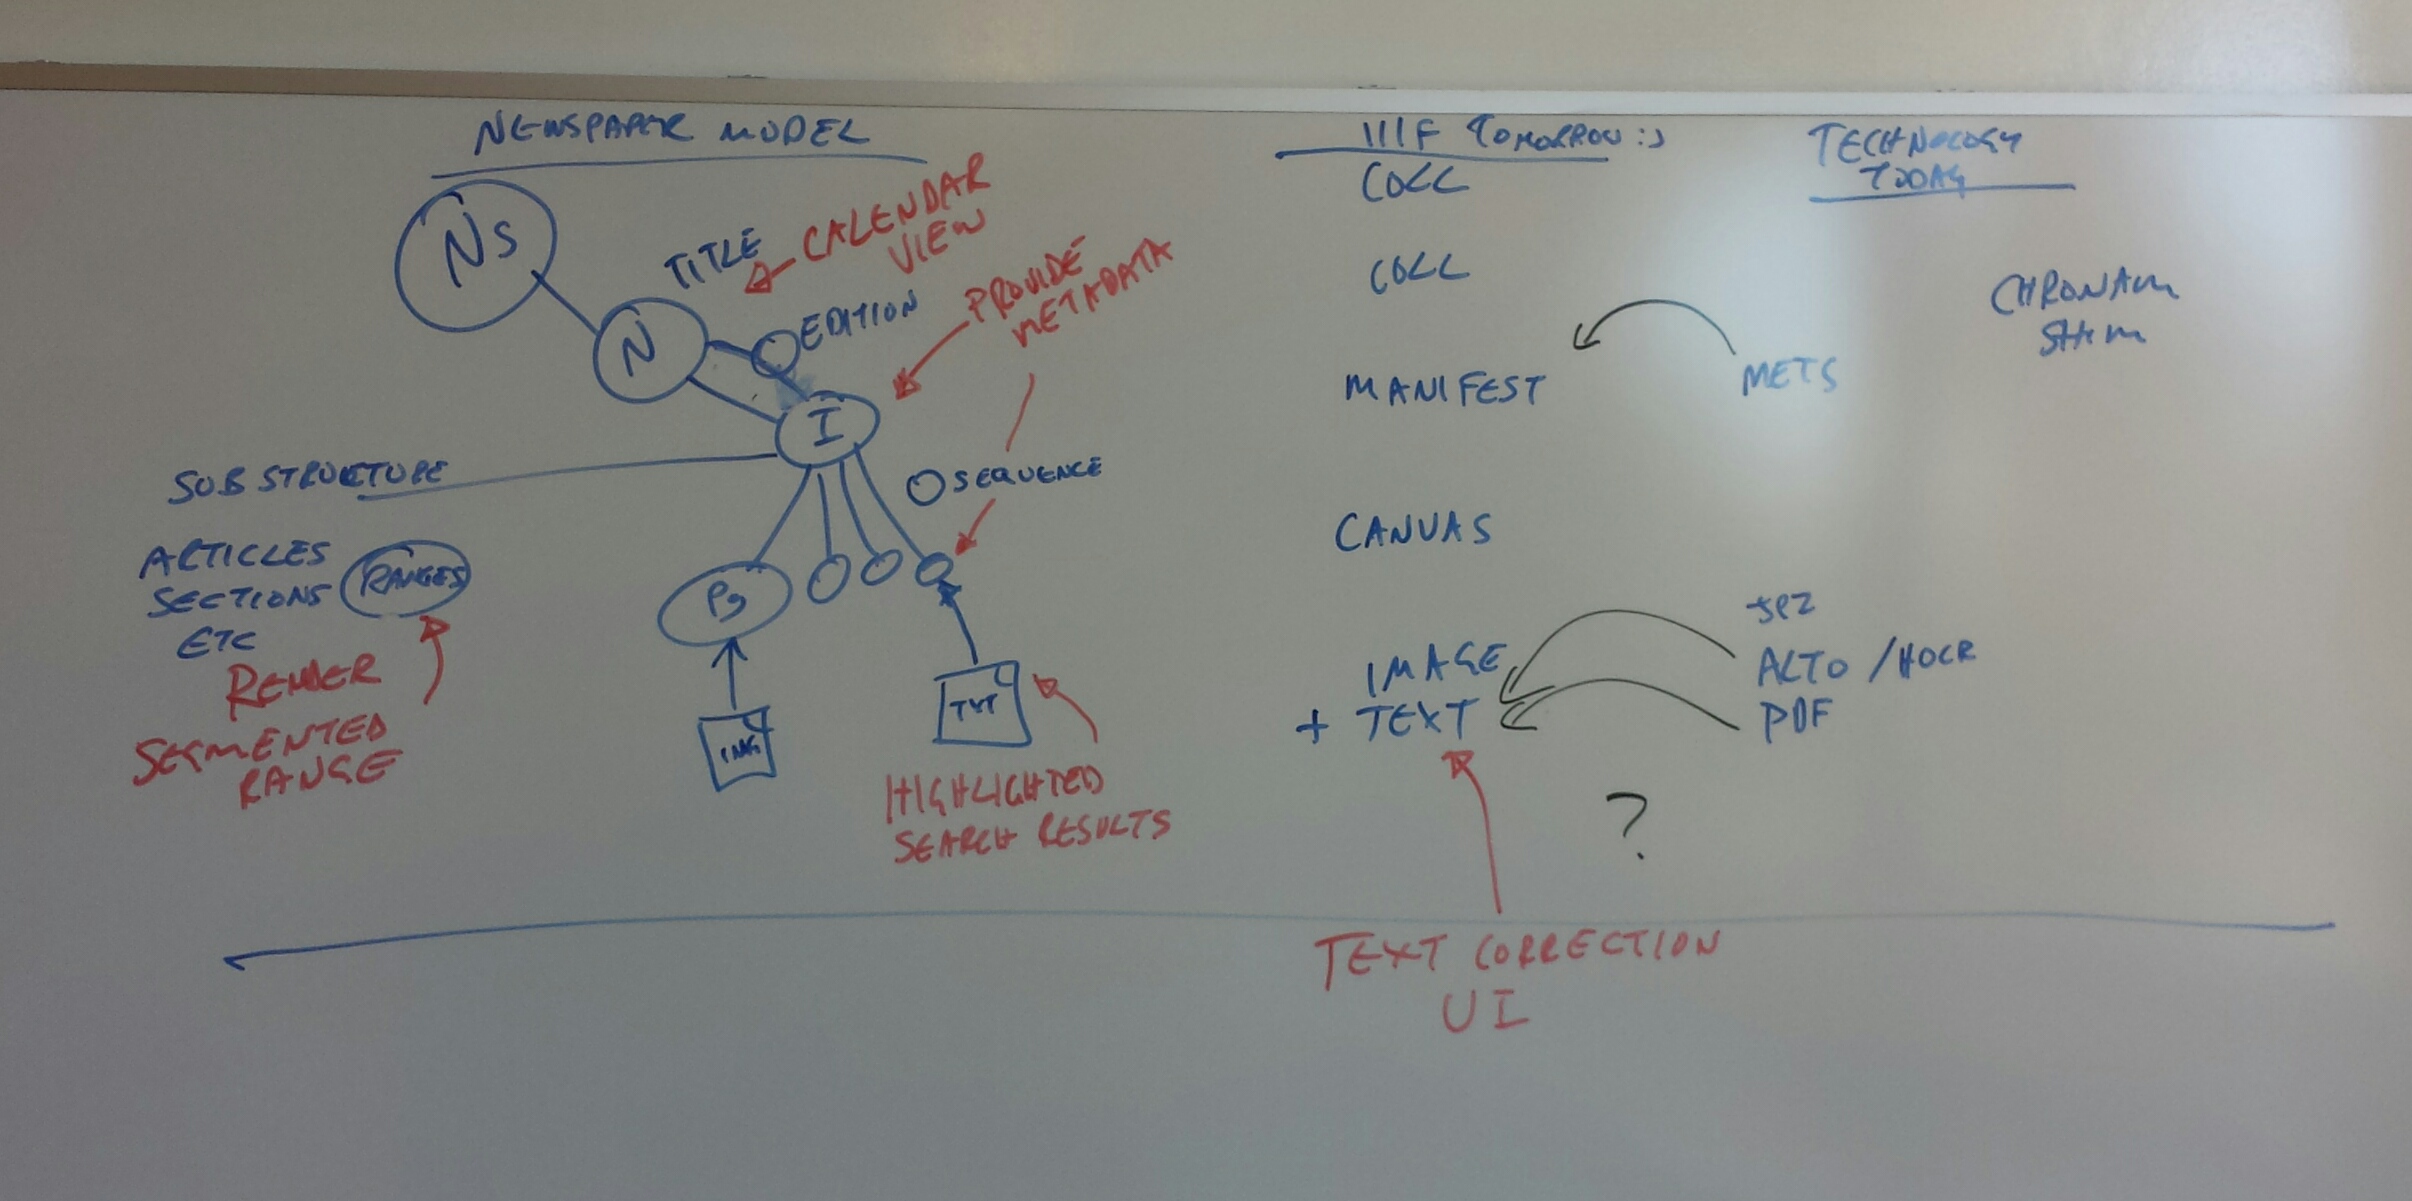 NEWSPAPER MODEL
NS
N
TITLE
CALENDAR
VIEW
EDITION
PROVIDE
METADATA
I
SUB STRUCTURE
SEQUENCE
ARTICLES
SECTIONS
ETC
RANGES
RENDER
SEGMENTED
RANGE
Pg
IMG
TXT
HIGHLIGHTED
SEARCH RESULTS
IIIF TOMORROW :)
COLL
COLL
MANIFEST
CANVAS
IMAGE
+ TEXT
TEXT CORRECTION
UI
TECHNOLOGY
TODAY
CHRONAM
SHIM
METS
JP2
ALTO / HOCR
PDF
?